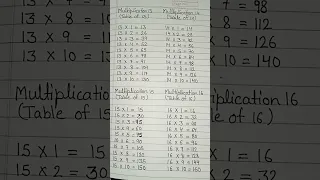 13 x 8 =
13 x 9 =
13 x 10 =
Multiplication
(Table of 15
15 x 1 =
15 x 2 = 30
Multiplication 13
(Table of 13)
13 x 1 = 13
13 x 2 = 26
13 x 3 = 39
13 x 4 = 52
13 x 5 = 65
13 x 6 = 78
13 x 7 = 91
13 x 8 = 104
13 x 9 = 117
13 x 10 = 130
Multiplication 14
(Table of 14)
14 x 1 = 14
14 x 2 = 28
14 x 3 = 42
14 x 4 = 56
14 x 5 = 70
14 x 6 = 84
14 x 7 = 98
14 x 8 = 112
14 x 9 = 126
14 x 10 = 140
Multiplication 15
(Table of 15)
15 x 1 = 15
15 x 2 = 30
15 x 3 = 45
15 x 4 = 60
15 x 5 = 75
15 x 6 = 90
15 x 7 = 105
15 x 8 = 120
15 x 9 = 135
15 x 10 = 150
Multiplication 16
(Table of 16)
16 x 1 = 16
16 x 2 = 32
16 x 3 = 48
16 x 4 = 64
16 x 5 = 80
16 x 6 = 96
16 x 7 = 112
16 x 8 = 128
16 x 9 = 144
16 x 10 = 160
7 = 98
8 = 112
9 = 126
10 = 140
plication 16
Table of 16)
x 1 = 16
x 2 = 32